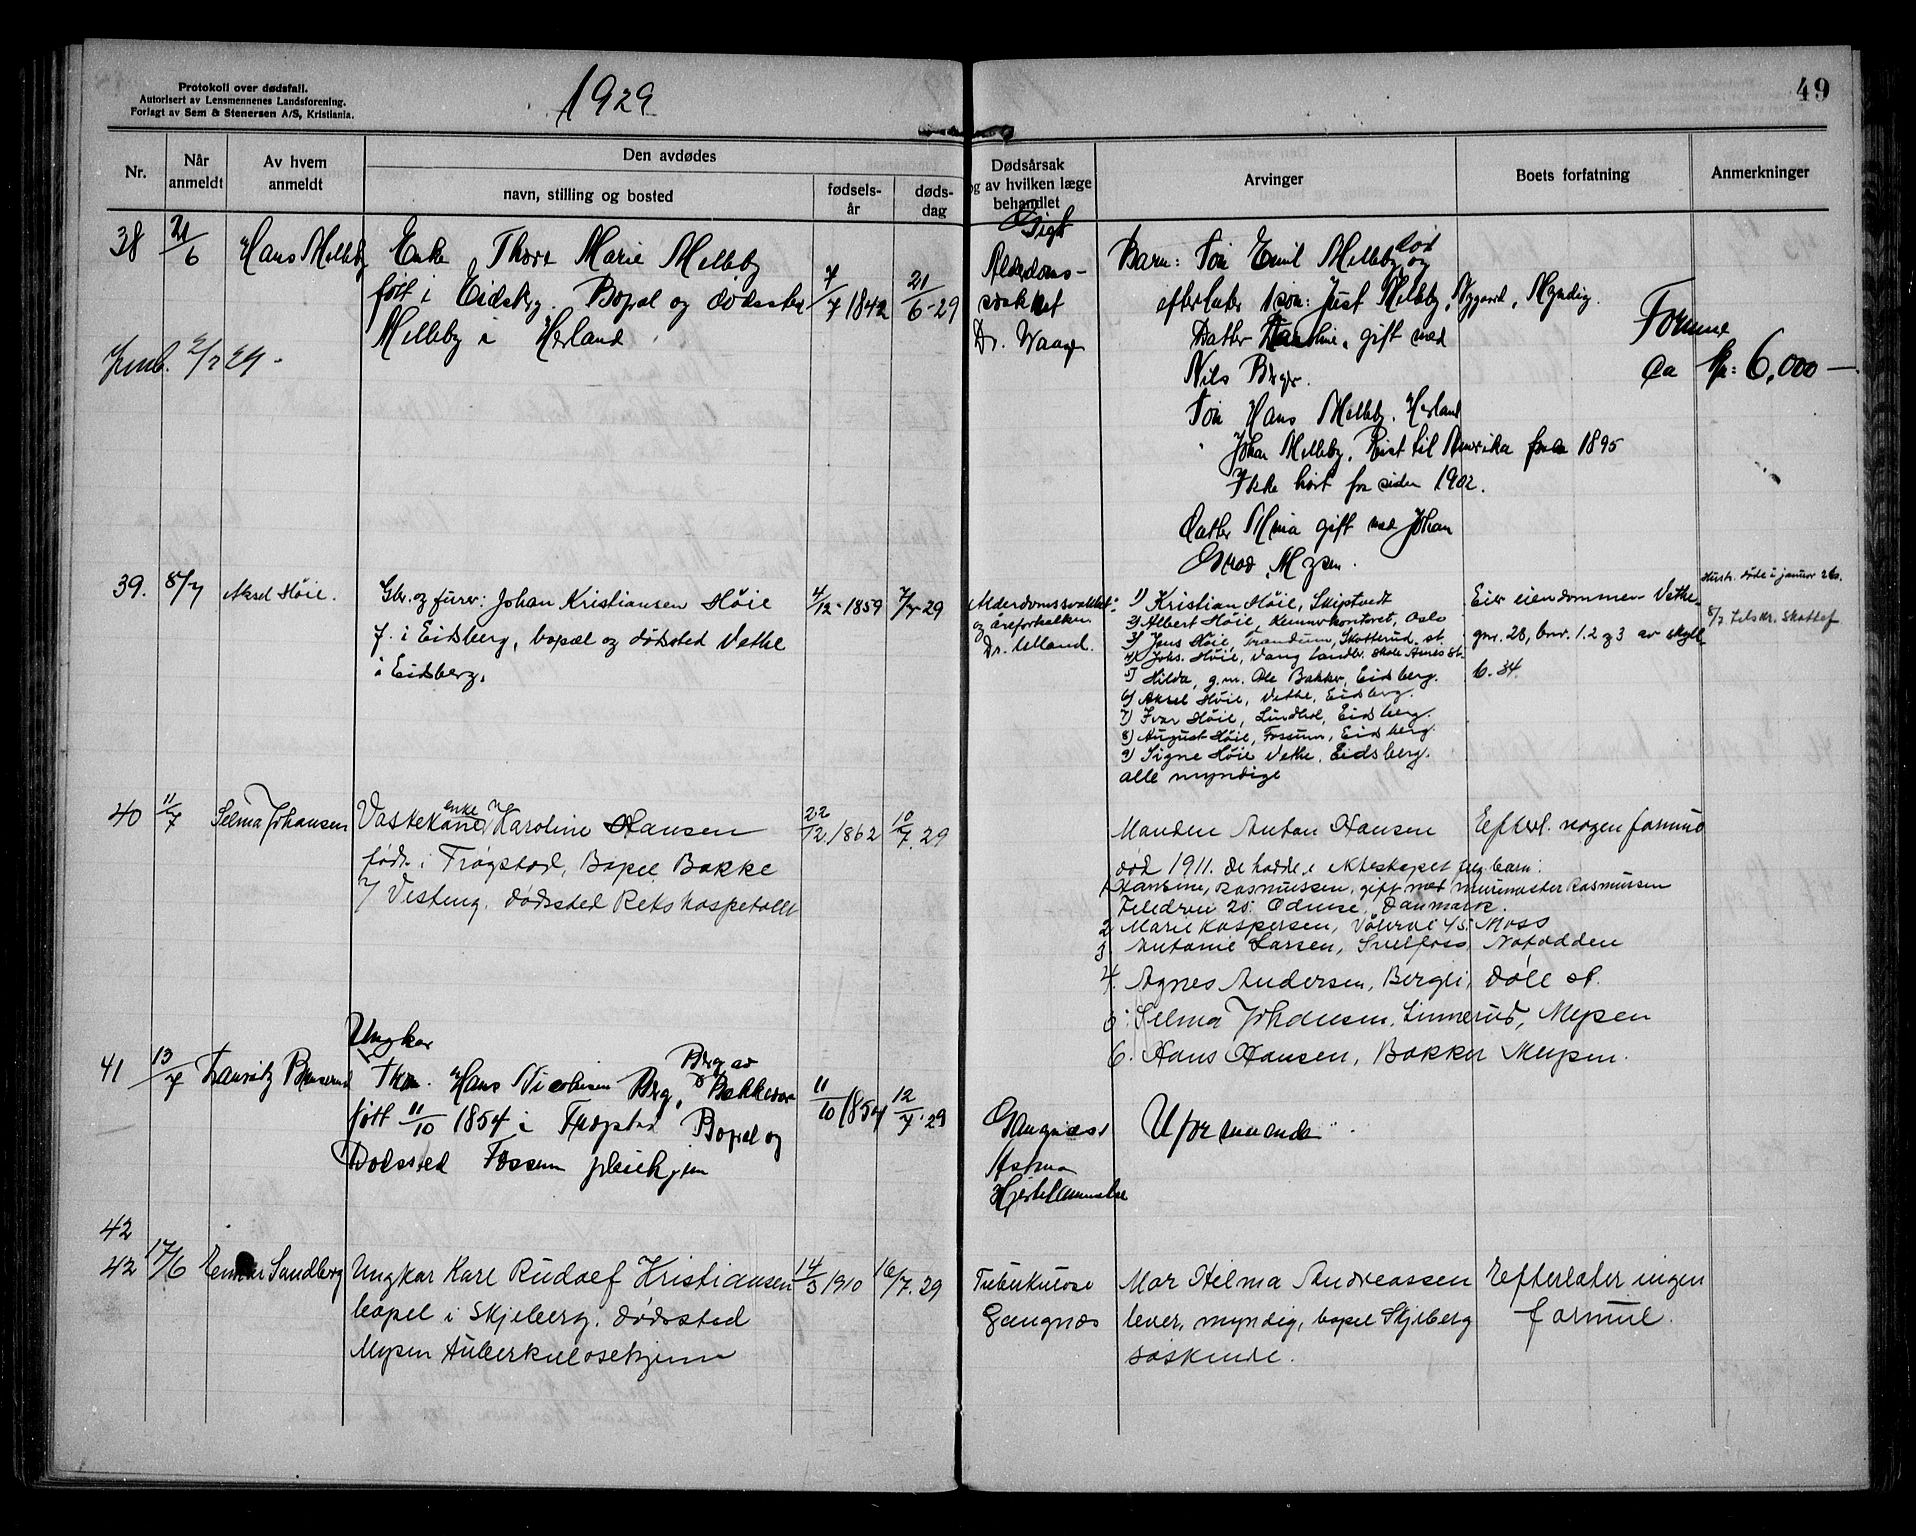 Protokoll over dødsfall.
Autorisert av Lensmennenes Landsforening.
Forlagt av Sem & Stenersen A/S, Kristiania.
1929
49
Nr.
Når anmeldt
Av hvem anmeldt
Den avdødes
navn, stilling og bosted
fødsels-år
døds-dag
Dødsårsak og av hvilken læge behandlet
Arvinger
Boets forfatning
Anmerkninger
38
21/6
Hans Melleby
Enke Thora Marie Melleby
født i Eidsberg. Bopæl og dødssted
Melleby i Herland
7/7 1842
21/6-29
Gigt
Alderdoms-
svakhet
Dr. Waage
Barn: Søn Emil Melleby død og
efterlater 1 søn: Just Melleby, Nygaard, Myndig.
Datter Karoline, gift med
Nils Berger.
Søn Hans Melleby. Herland
" Johan Melleby. Reist til Amerika 1895
Ikke hørt fra siden 1902.
Datter Mina gift med Johan
Mysen.
Formue
ca kr: 6.000 —
39.
8/7
Aksel Høie.
Gbr. og furer: Johan Kristiansen Høie
f. i Eidsberg, bopæl og dødssted Vethe
i Eidsberg.
4/12-1859
7/7-29
Alderdomssvakhet
og åreforkalken
Dr. Ulland.
1) Kristian Høie, Skiptvedt
2) Albert Høie, Kemnerkontoret, Oslo
3) Jens Høie, Trandum, Skotterud st.
4) Johs. Høie, Vang landbr. skole Arnes st.
5) Hilda, g.m. Ole Bakker, Eidsberg.
6) Aksel Høie, Vethe, Eidsberg.
7) Ivar Høie, Lindhol, Eidsberg.
8) August Høie, Fossum, Eidsberg.
9) Signe Høie Vethe, Eidsberg.
alle myndige
Eier eiendommen Vethe
gnr. 28, bnr. 1.2 og 3 av skyll
6.34.
Hustr. døde i januar 26.
8/7 tilskr. Skattef
40
11/7
Selma Johansen
Vaskekone enke Karoline Hansen
født i Trøgstad, Bopel Bakke
Vesteng. dødssted Rikshospetalet
22/12 1862
10/7.29
Manden Anton Hansen
død 1911. de hadde i Ekteskapet flg. barn:
1 Hansine, Rasmussen, gift med murmester Rasmussen
20. Odense, Danmark.
2 Marie Kaspersen, Vålervei 45. Moss
3 Antonie Larsen, Svelfoss Notodden
4. Agnes Andersen, Bergli, Dåle st.
5. Selma Johansen, Linnerud, Mysen
6. Hans Hansen, Bakker Mysen.
Efterl. nogen formue
41
13/7
Lauritz Bruserud
Ungkar
Hans Nicolaisen Berg, Berg av Bakkeior
født 11/10 1854 i Trøgstad Bopæl og
Dødssted Fossum pleiehjem
11/10 1854
12/7.29
Gangnæss
Astma
Hjertelammelse
Uformuende
42
42
17/6
Einar Sundberg
Ungkar Karl Rudolf Kristiansen
bopel i Skjeberg. dødssted
Mysen tuberkulosehjem
14/3 1910
16/7.29
Tuberkulose
Gangnæs
Mor Hilma Andreassen
lever, myndig, bopel Skjeberg
søskende.
Efterlater ingen
formue.